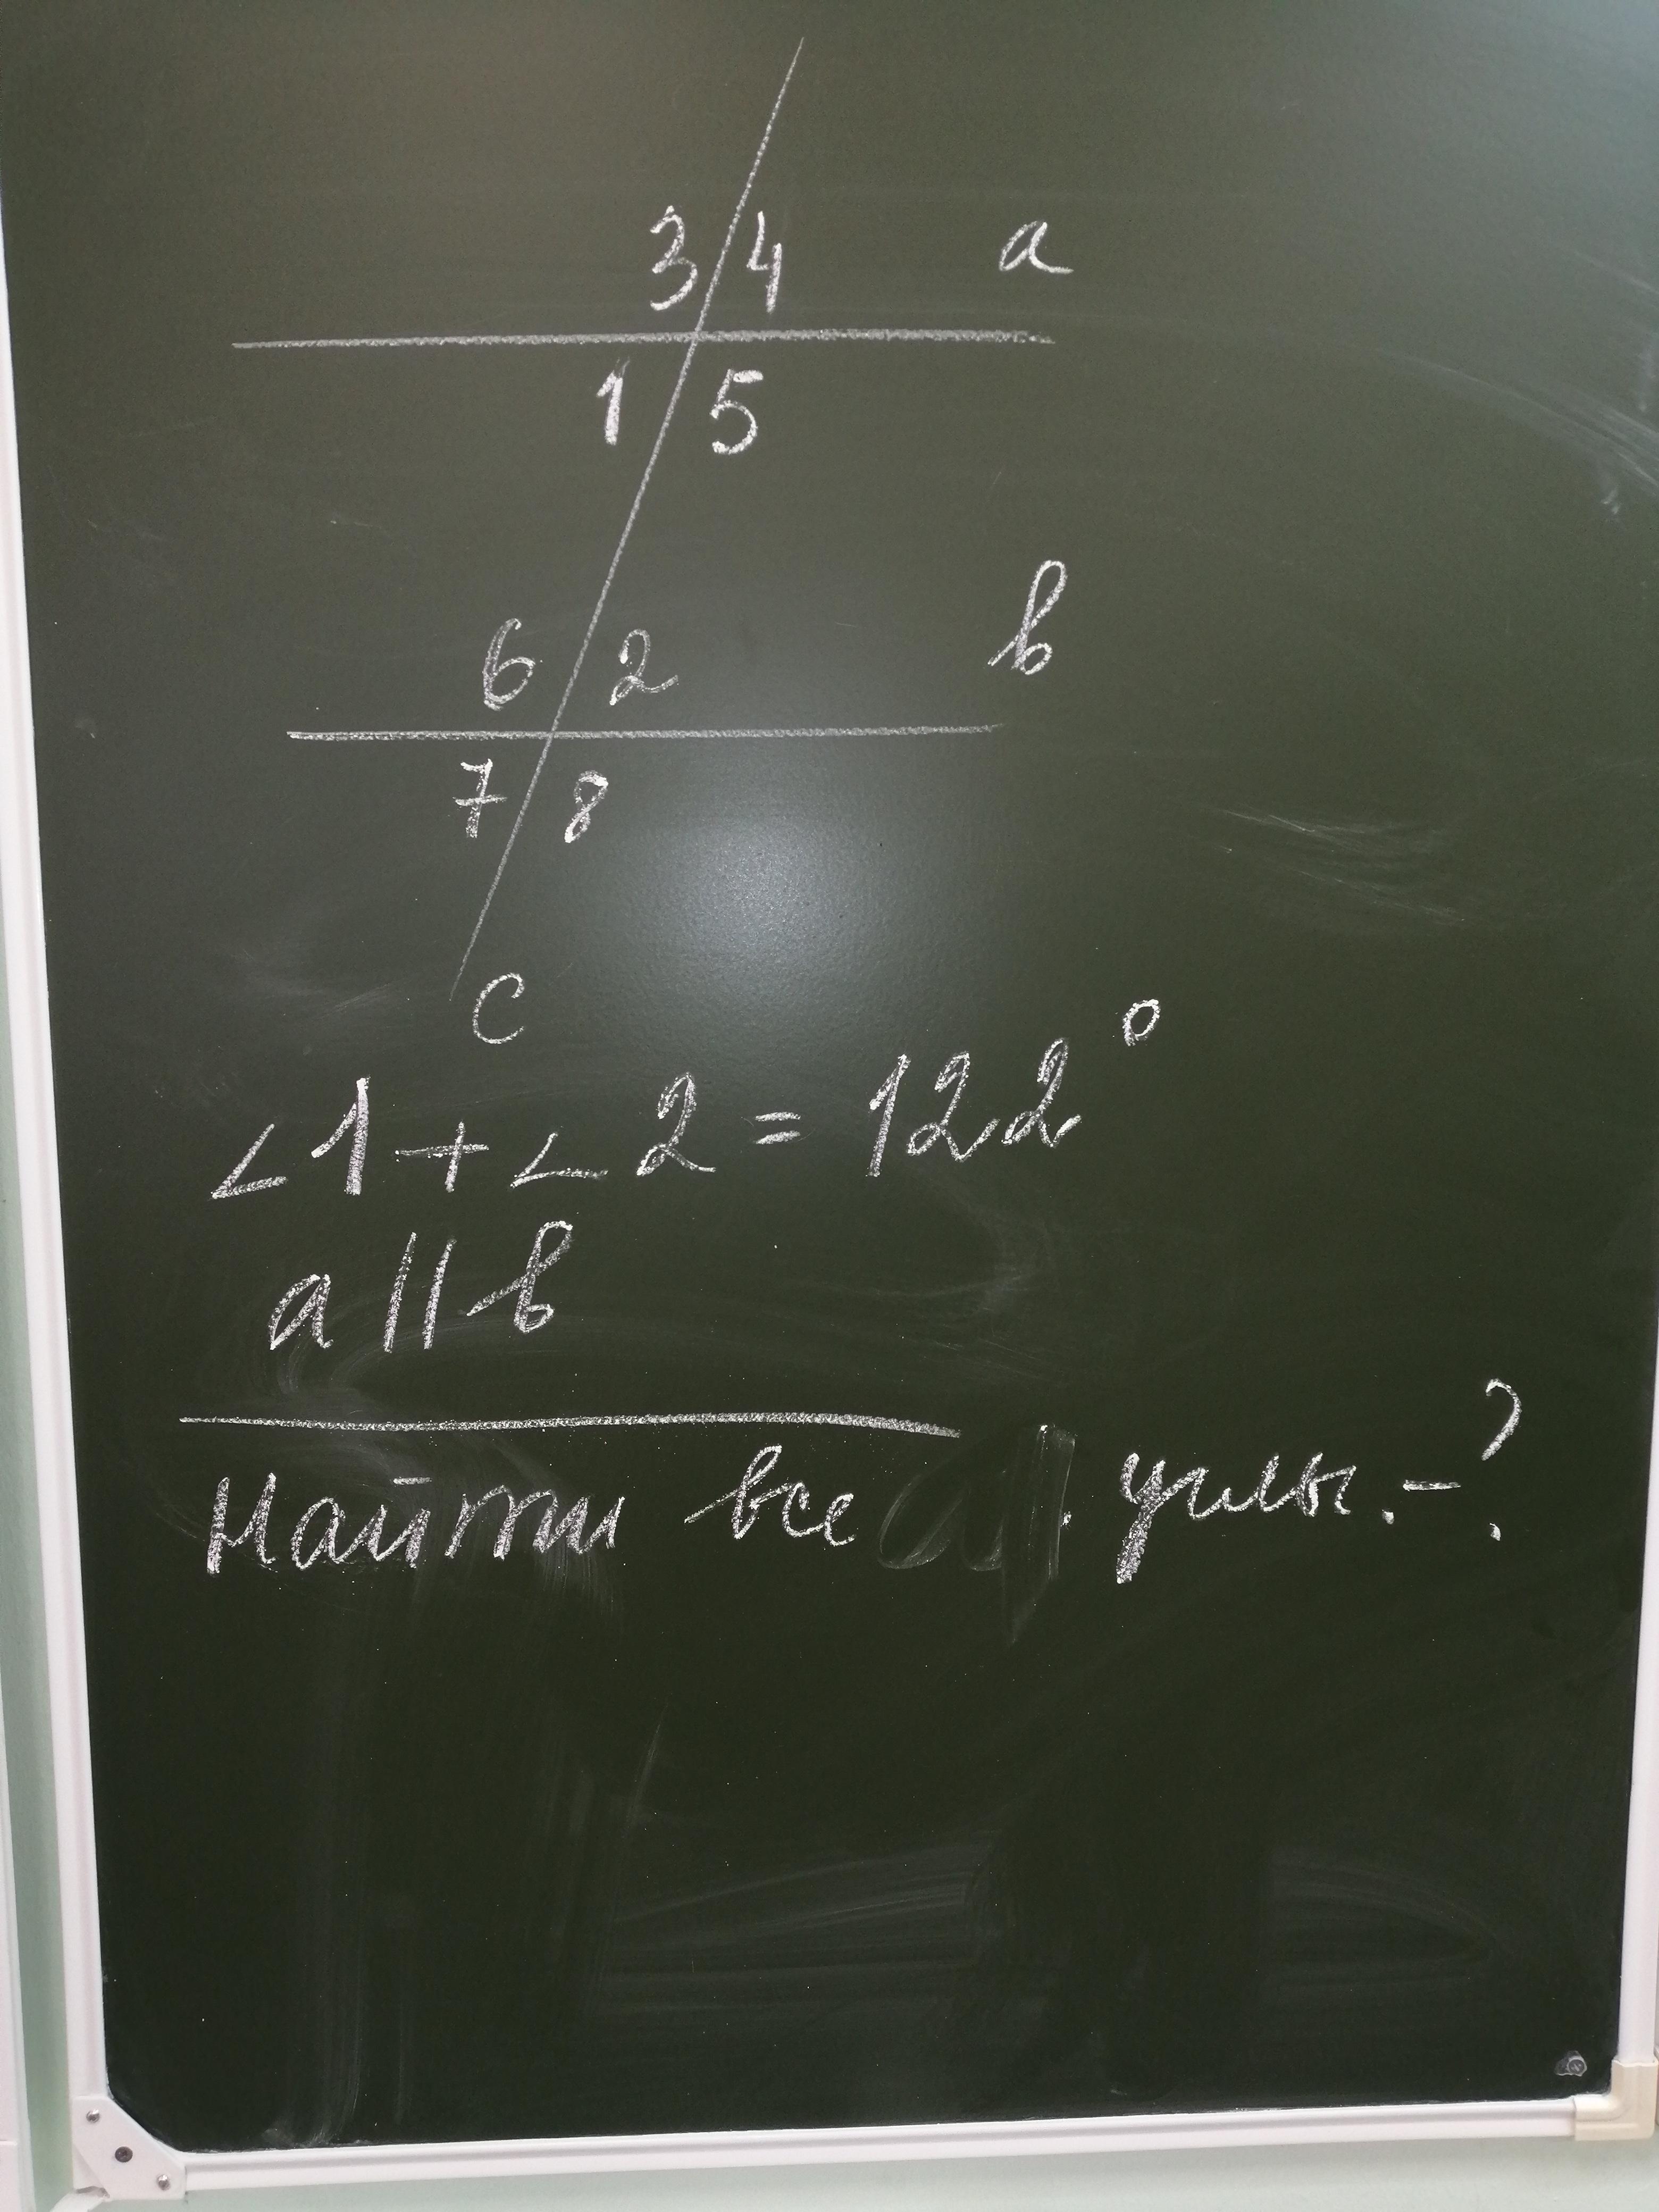 3 4 a
1 5
6 2 b
7 8
c
∠1 + ∠2 = 122°
a || b
Найти все углы. - ?